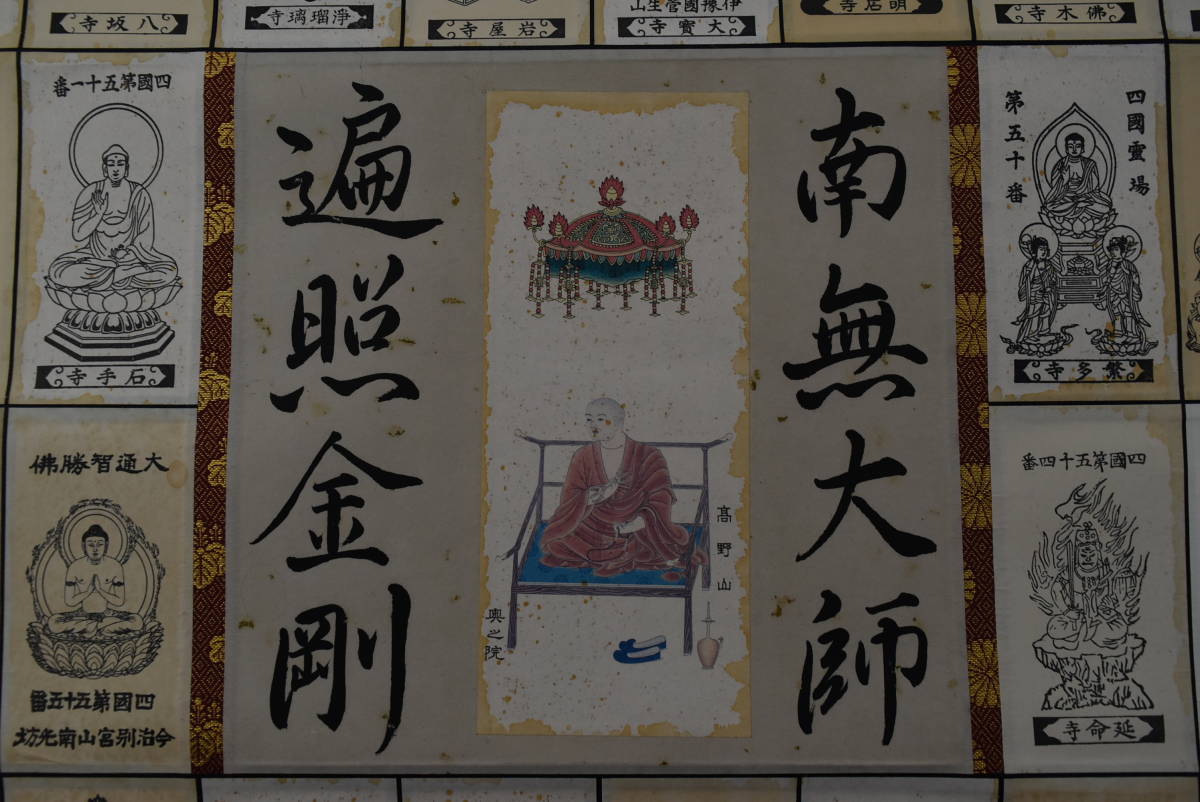 八坂寺
淨瑠璃寺
岩屋寺
伊豫國菅生山
大寶寺
明石寺
佛木寺
四國第五十一番
石手寺
大通智勝佛
四國第五十五番
今治別宮山南光坊
南無大師
遍照金剛
高野山
奥之院
四國霊場
第五十番
繁多寺
四國第五十四番
延命寺